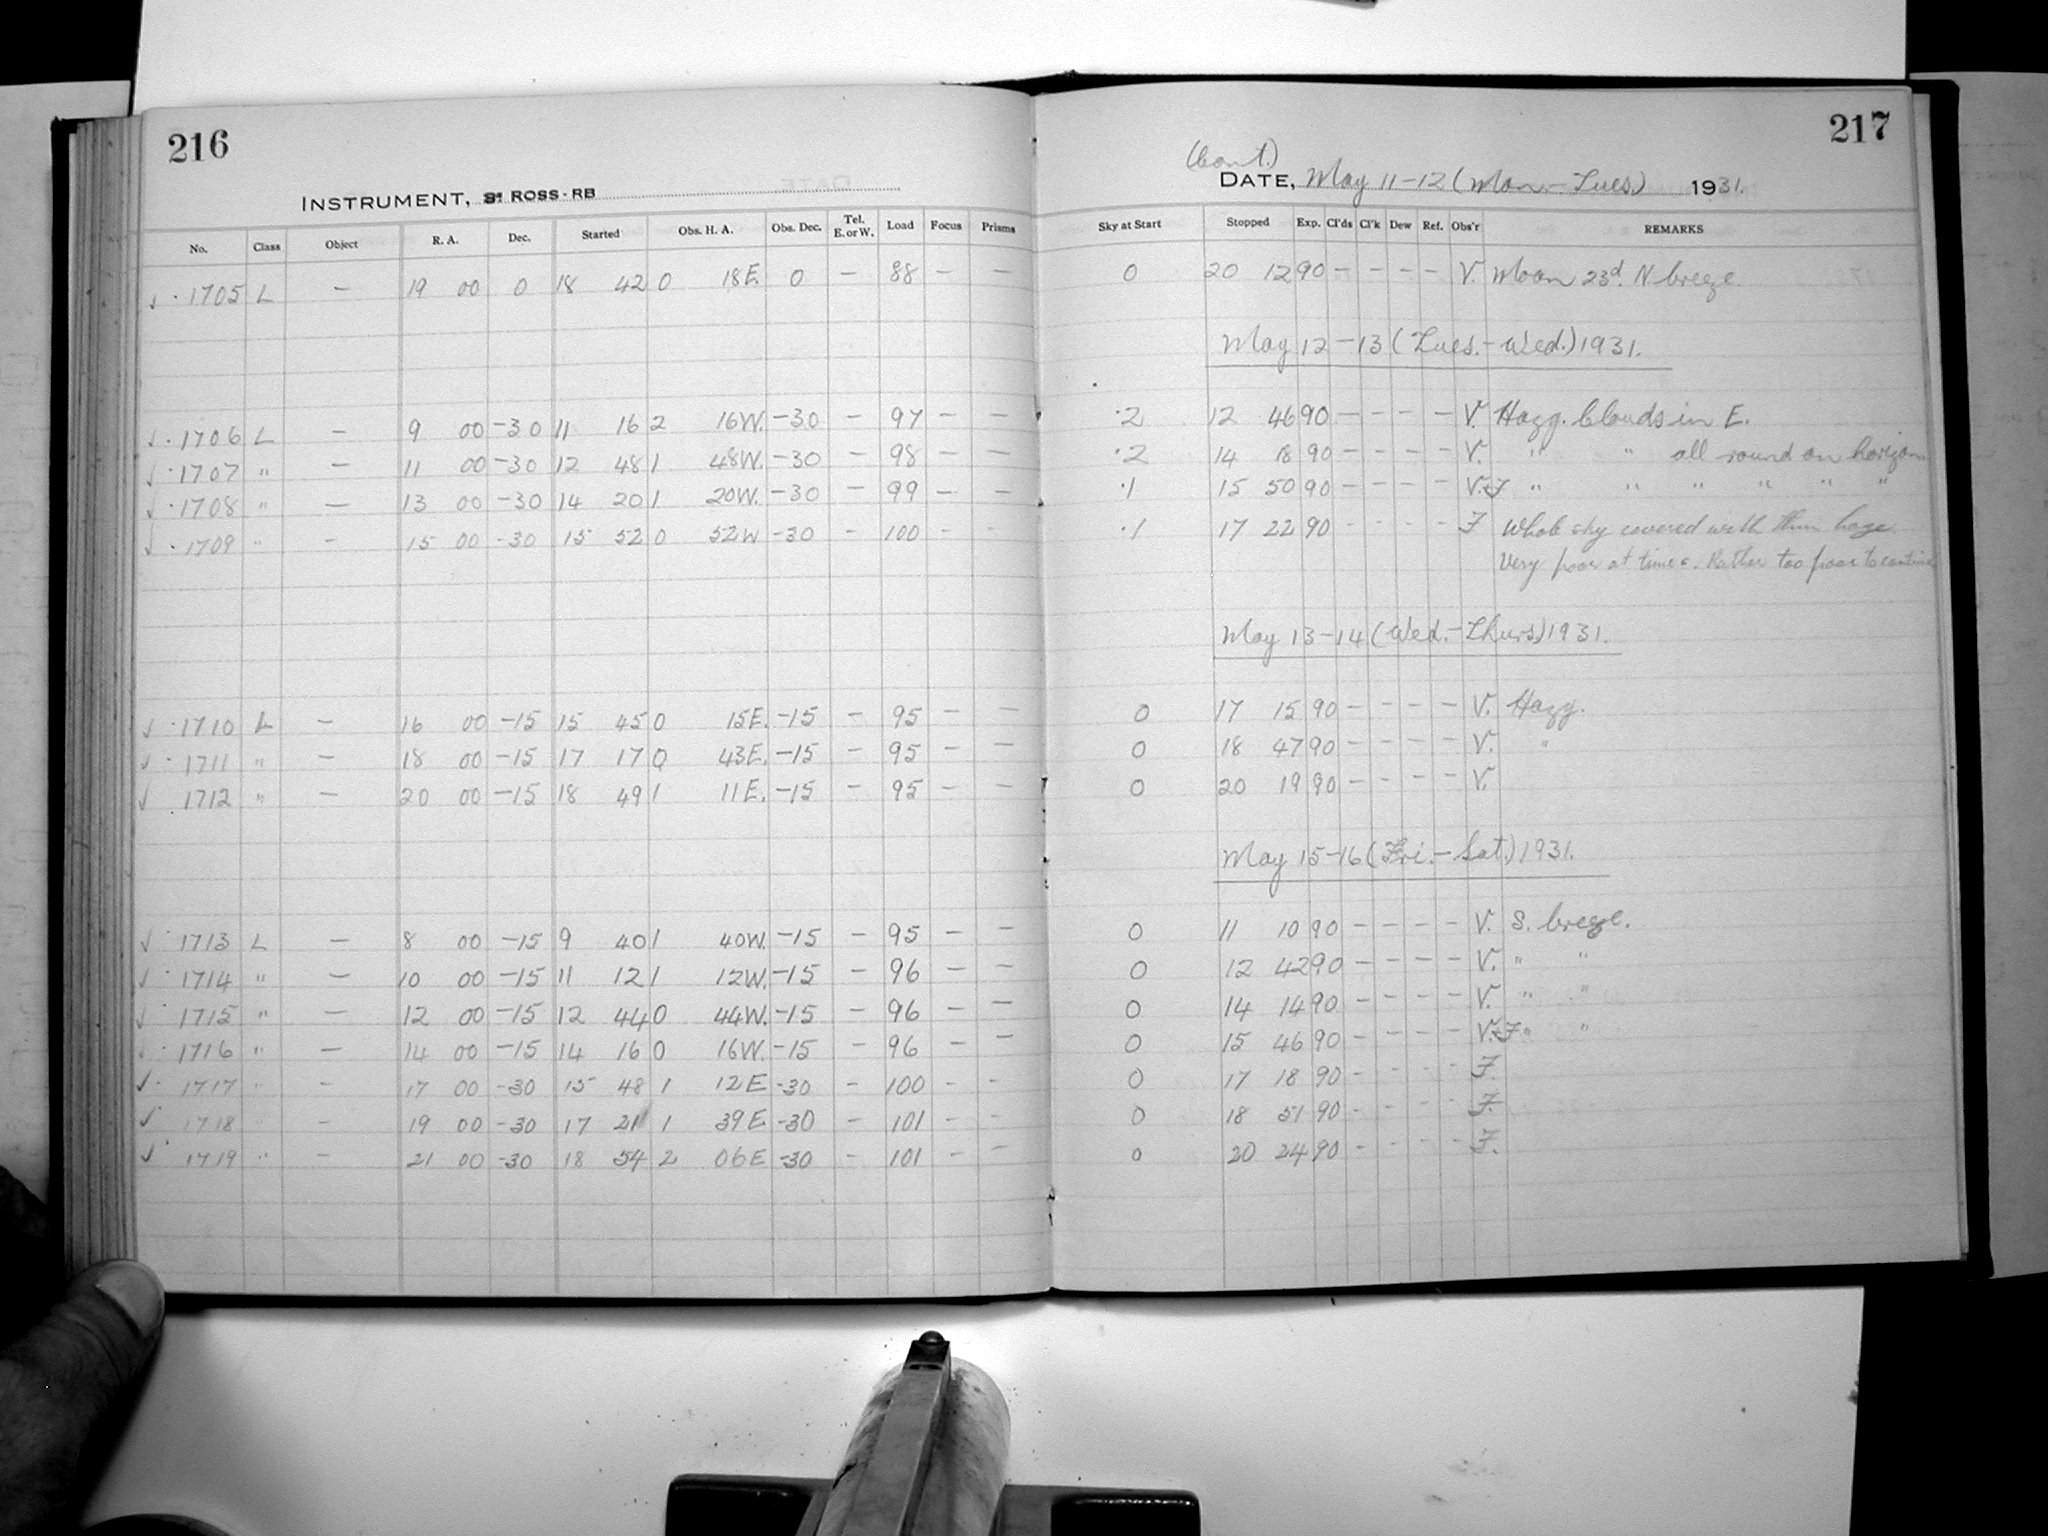 216
INSTRUMENT, 3" ROSS-RB
No. Class Object R. A. Dec. Started Obs. H. A. Obs. Dec. Tel. E. or W. Load Focus Prisms
✓ · 1705 L — 19 00 0 18 42 0 18E. 0 — 88 — —
✓ · 1706 L — 9 00 -30 11 16 2 16W. -30 — 97 — —
✓ · 1707 " — 11 00 -30 12 48 1 48W. -30 — 98 — —
✓ · 1708 " — 13 00 -30 14 20 1 20W. -30 — 99 — —
✓ · 1709 " — 15 00 -30 15 52 0 52W -30 — 100 — —
✓ · 1710 L — 16 00 -15 15 45 0 15E. -15 — 95 — —
✓ · 1711 " — 18 00 -15 17 17 0 43E. -15 — 95 — —
✓ 1712 " — 20 00 -15 18 49 1 11E. -15 — 95 — —
✓ · 1713 L — 8 00 -15 9 40 1 40W. -15 — 95 — —
✓ · 1714 " — 10 00 -15 11 12 1 12W. -15 — 96 — —
✓ · 1715 " — 12 00 -15 12 44 0 44W. -15 — 96 — —
✓ · 1716 " — 14 00 -15 14 16 0 16W. -15 — 96 — —
✓ · 1717 " — 17 00 -30 15 48 1 12E -30 — 100 — —
✓ 1718 " — 19 00 -30 17 21 1 39E -30 — 101 — —
✓ · 1719 " — 21 00 -30 18 54 2 06E -30 — 101 — —
217
(Cont.)
DATE, May 11-12 (Mon.-Tues) 1931.
Sky at Start Stopped Exp. Cl'ds Cl'k Dew Ref. Obs'r REMARKS
0 20 12 90 — — — — V. Moon 23d. N. breeze.
May 12-13 (Tues.-Wed.) 1931.
·2 12 46 90 — — — — V. Hazy. Clouds in E.
·2 14 18 90 — — — — V. " " all round on horizon
·1 15 50 90 — — — — V.+F " " " " " "
·1 17 22 90 — — — — F Whole sky covered with thin haze.
Very poor at times. Rather too poor to continue
May 13-14 (Wed.-Thurs) 1931.
0 17 15 90 — — — — V. Hazy.
0 18 47 90 — — — — V. "
0 20 19 90 — — — — V.
May 15-16 (Fri.-Sat.) 1931.
0 11 10 90 — — — — V. S. breeze.
0 12 42 90 — — — — V. " "
0 14 14 90 — — — — V. " "
0 15 46 90 — — — — V.+F " "
0 17 18 90 — — — — F.
0 18 51 90 — — — — F.
0 20 24 90 — — — — F.